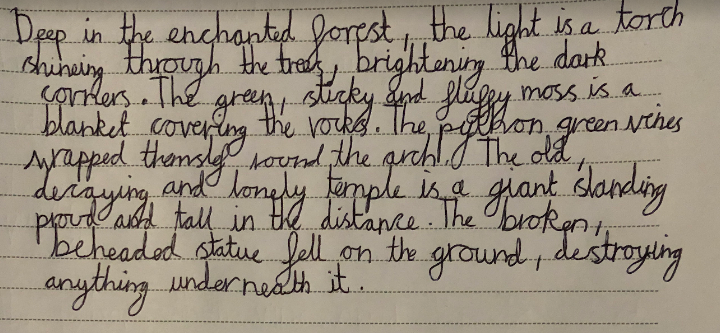 Deep in the enchanted forest, the light is a torch
shineing through the trees, brightening the dark
corners. The green, sticky and fluffy moss is a
blanket covering the rocks. The python green vines
wrapped round the arch!. The old,
decaying and lonely temple is a giant standing
proud and tall in the distance. The broken,
beheaded statue fell on the ground, destroying
anything underneath it.